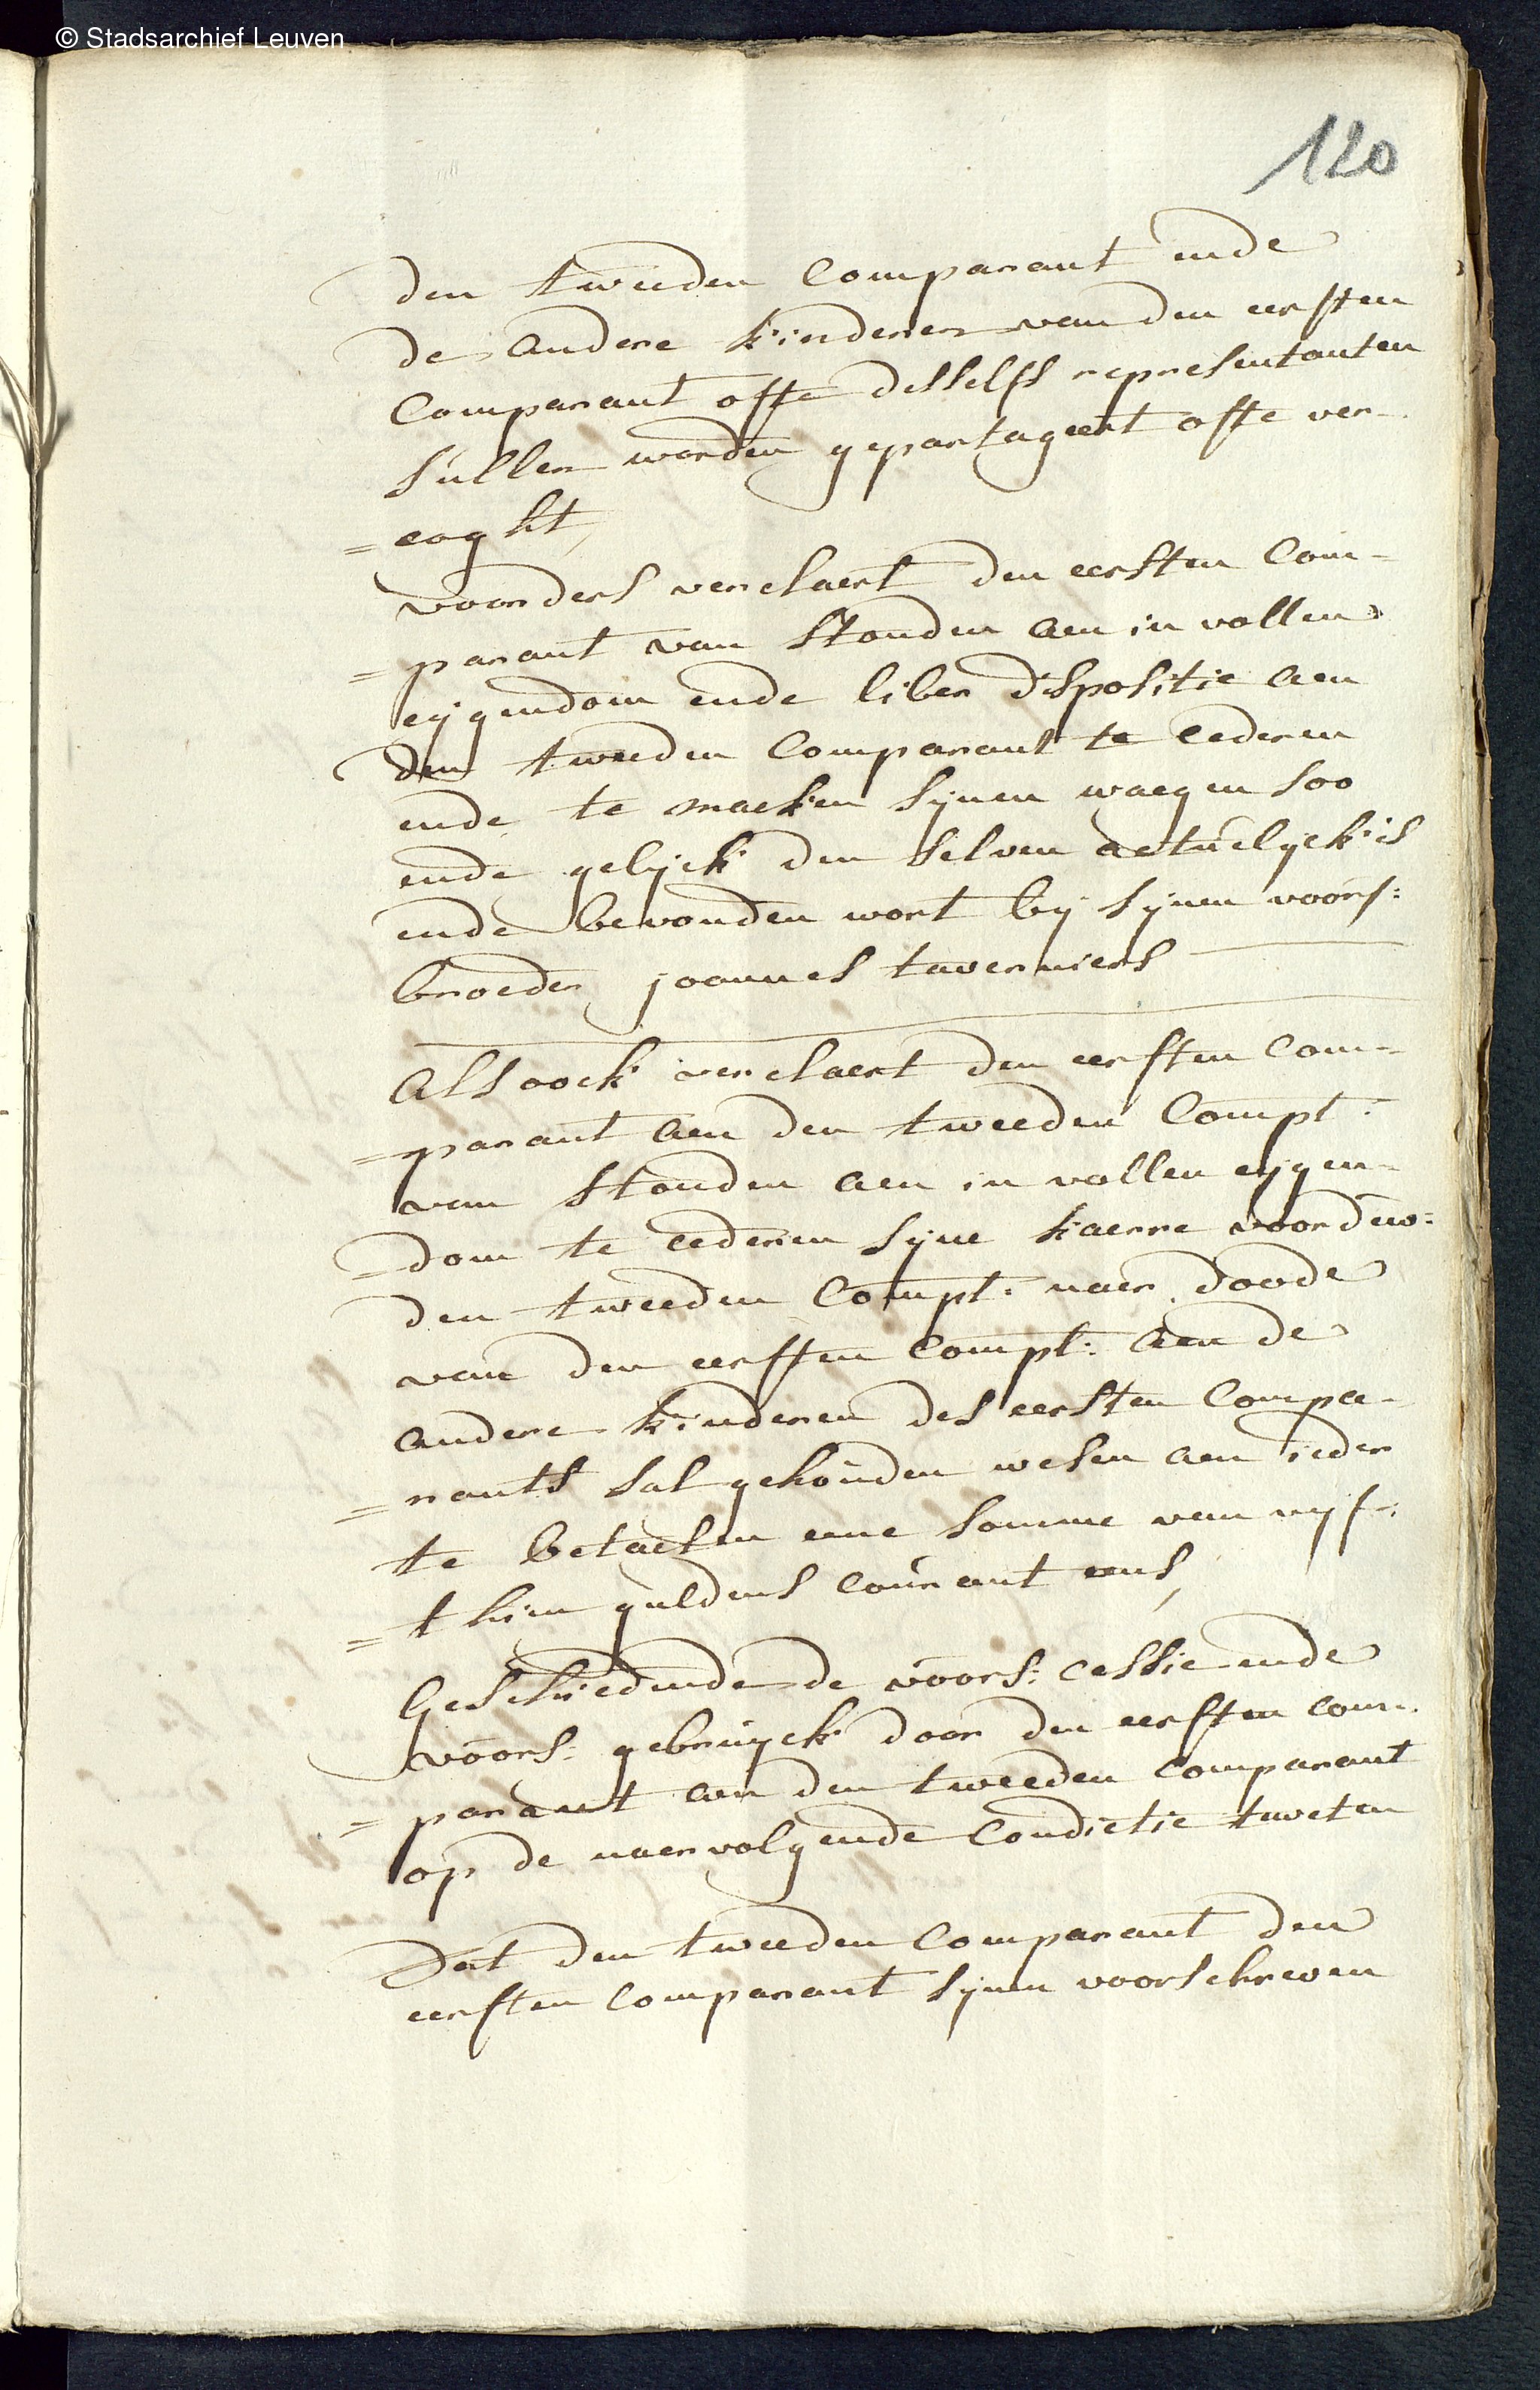 © Stadsarchief Leuven
120
den tweeden Comparant ende
de andere kinderen van den eersten
Comparant ofte desselfs representanten
sullen worden gepartageert ofte ver-
=eaght,
voorders verclaert den eersten Com-
=parant van stonden aen in vollen
eijgendom ende liber dispositie aen
den tweeden Comparant te cederen
ende te maeken sijnen waegen soo
ende gelijck den selven actuelyck is
ende bevonden wort bij sijnen voors:
broeder joannes taverniers
Als oock verclaert den eersten Com-
=parant aen den tweeden Compt:
van stonden aen in vollen eijgen-
=dom te cederen sijne kaerre voor
den tweeden Compt: naer doode
van den eersten Compt: aen de
andere kinderen des eersten Compa-
=rants sal gehouden wesen aen ieder
te betaelen eene somme van vijf-
=thien guldens courant eens,
Geschiedende de voors: cessie ende
voors: gebruyck door den eersten com-
=parant aen den tweeden Comparant
op de naervolgende Condietie tweten
Dat den tweeden Comparant den
eersten Comparant sijnen voorschreven